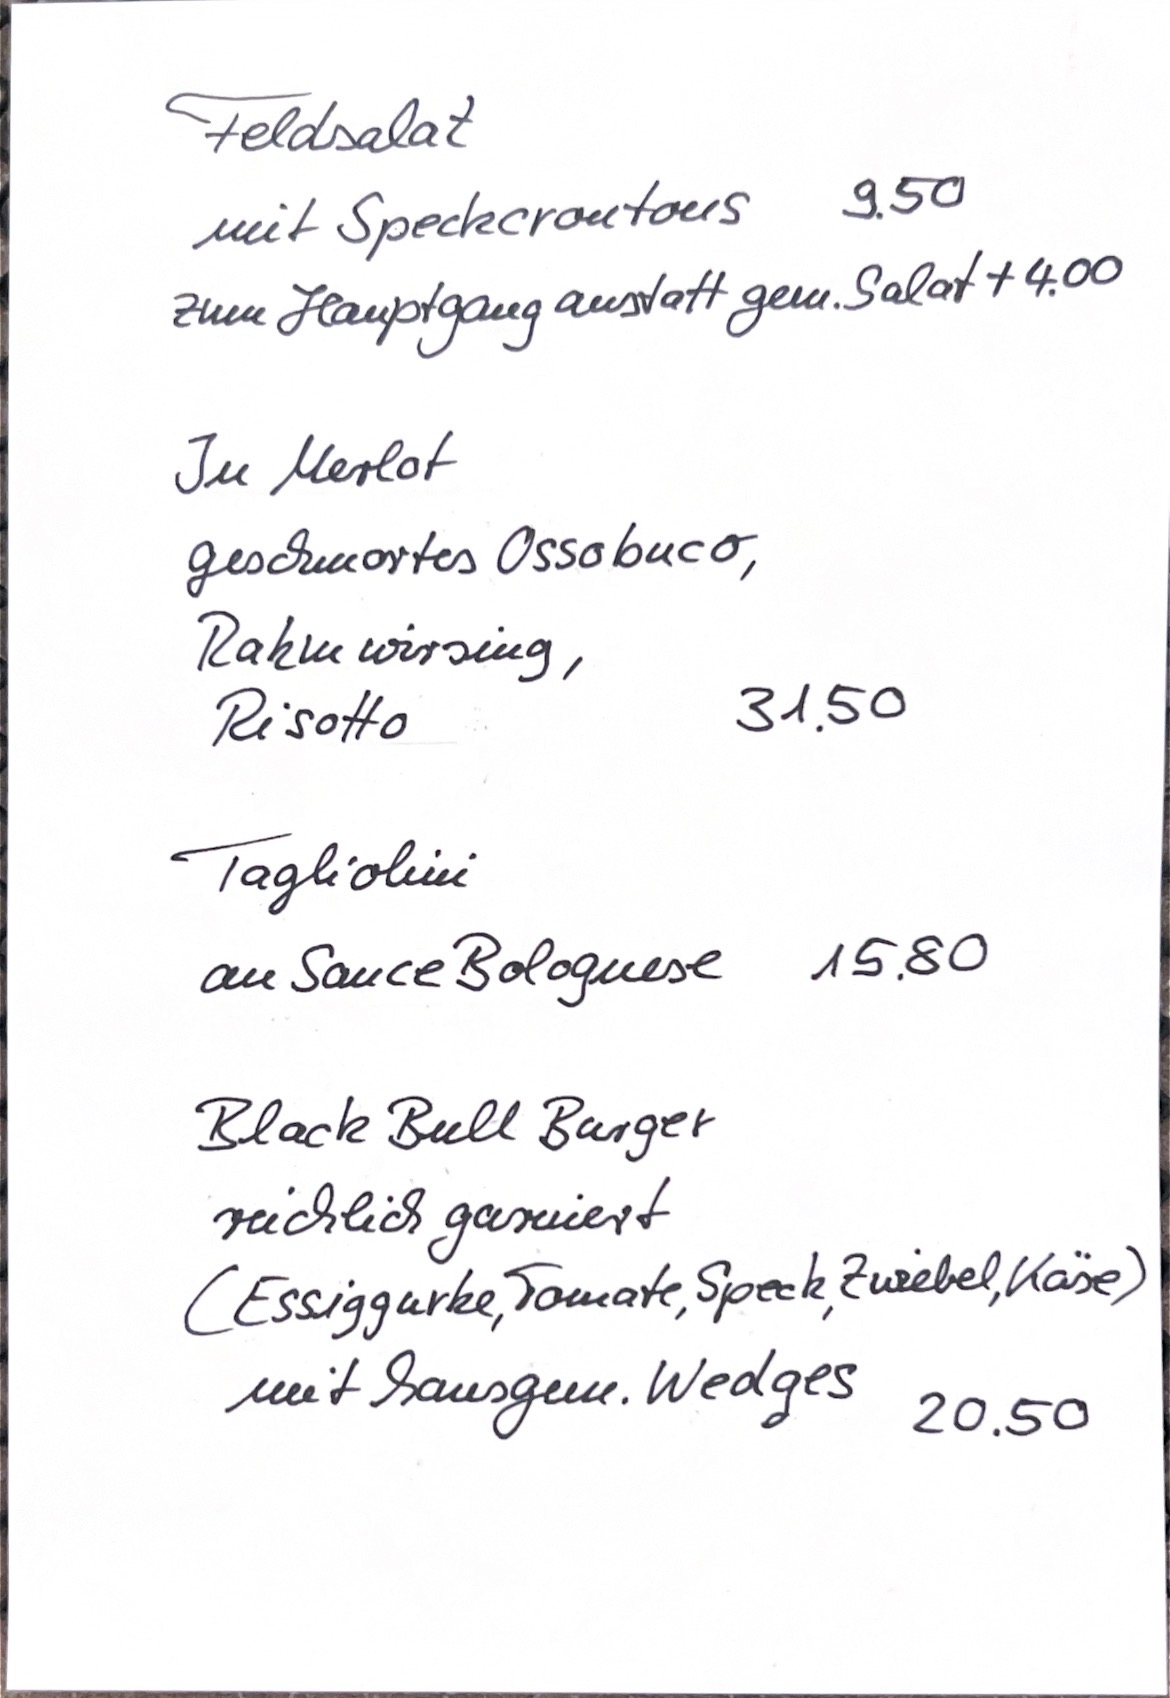 Feldsalat
mit Speckcroutons 9.50
zum Hauptgang anstatt gem. Salat + 4.00
In Merlot
geschmortes Ossobuco,
Rahmwirsing,
Risotto 31.50
Tagliolini
an Sauce Bolognese 15.80
Black Bull Burger
reichlich garniert
(Essiggurke, Tomate, Speck, Zwiebel, Käse)
mit hausgem. Wedges 20.50